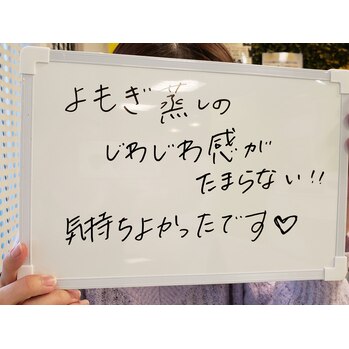 よもぎ蒸しの
じわじわ感が
たまらない!!
気持ちよかったです♡